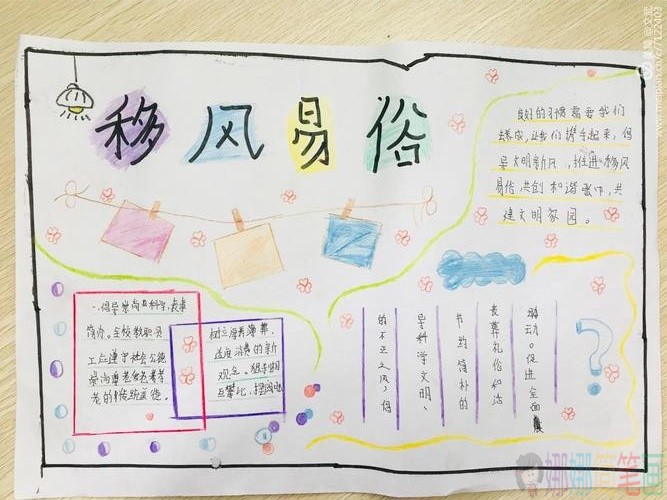 移风易俗
良好的习惯需要我们
去养成,让我们携手起来,倡
导文明新风,推进移风
易俗,共创和谐
共
建文明家园。
一.倡导崇尚科学,丧事
简办。全校教职员
工应遵守社会公德
崇尚尊老爱老养
老的传统美德。
树立
适度消费的新
观念。
的不正之风,倡
导科学文明、
节约简朴的
丧葬礼俗和活
动。促进全面
娜娜简笔画